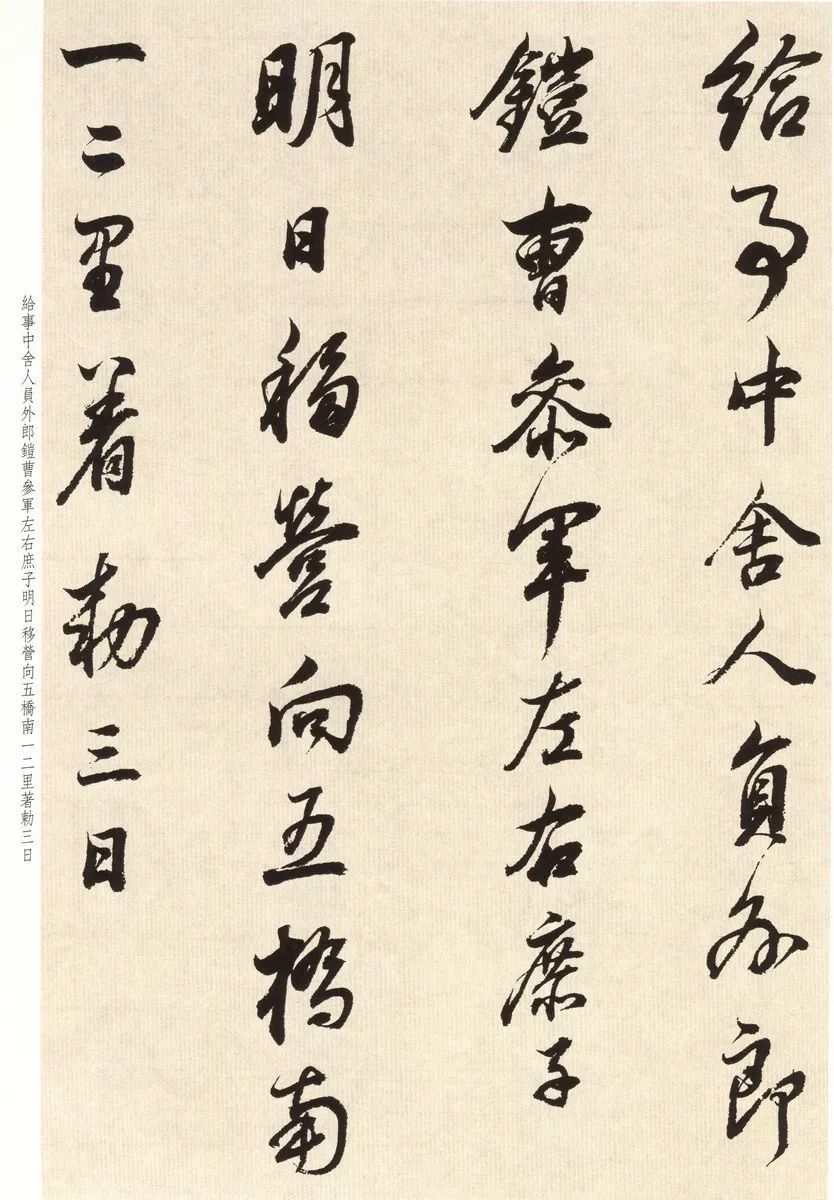 給事中舍人員外郎
鎧曹參軍左右庶子
明日移營向五橋南
一二里著勅三日
給事中舍人員外郎鎧曹參軍左右庶子明日移營向五橋南一二里著勅三日